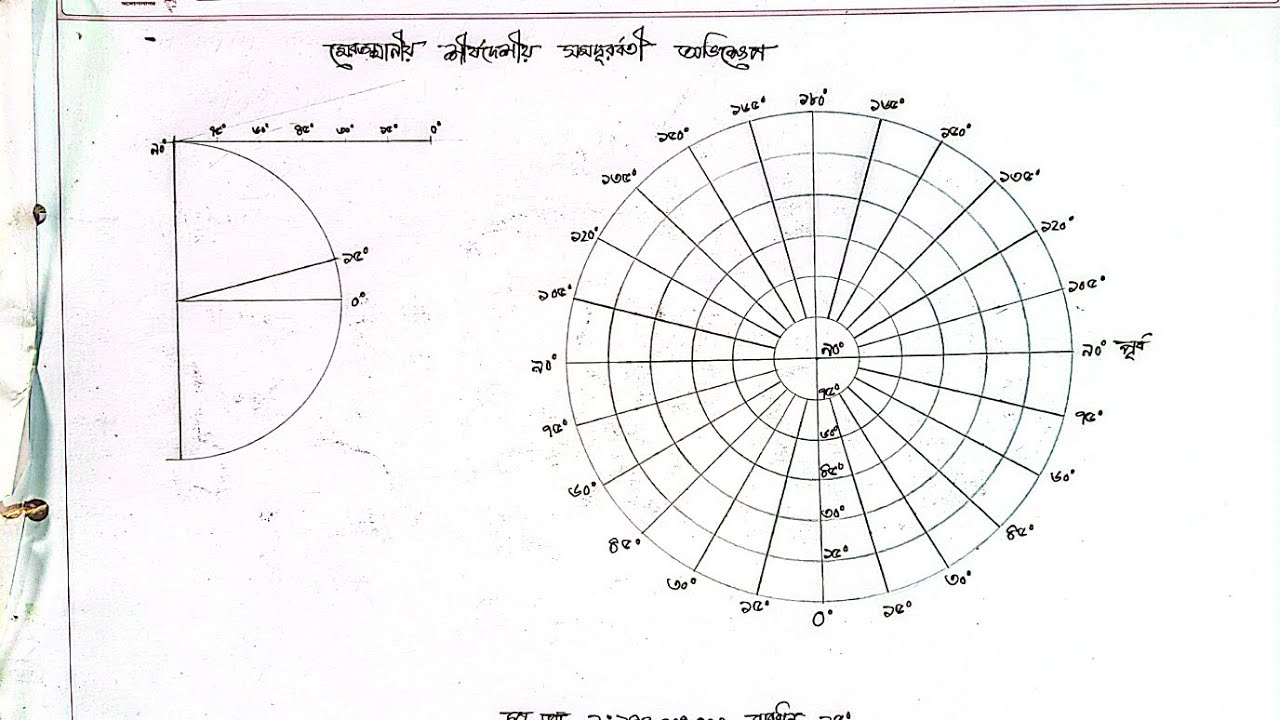 মেরুস্থানীয় শীর্ষদেশীয় সমদূরবর্তী অভিক্ষেপ
৯০° ৭৫° ৬০° ৪৫° ৩০° ১৫° ০°
১৫°
০°
১৬৫° ১৮০° ১৬৫°
১৫০° ১৫০°
১৩৫° ১৩৫°
১২০° ১২০°
১০৫° ১০৫°
৯০° ৯০° ৯০° পূর্ব
৭৫° ৭৫° ৭৫°
৬০°
৬০° ৪৫° ৬০°
৩০°
৪৫° ১৫° ৪৫°
৩০° ৩০°
১৫° ০° ১৫°